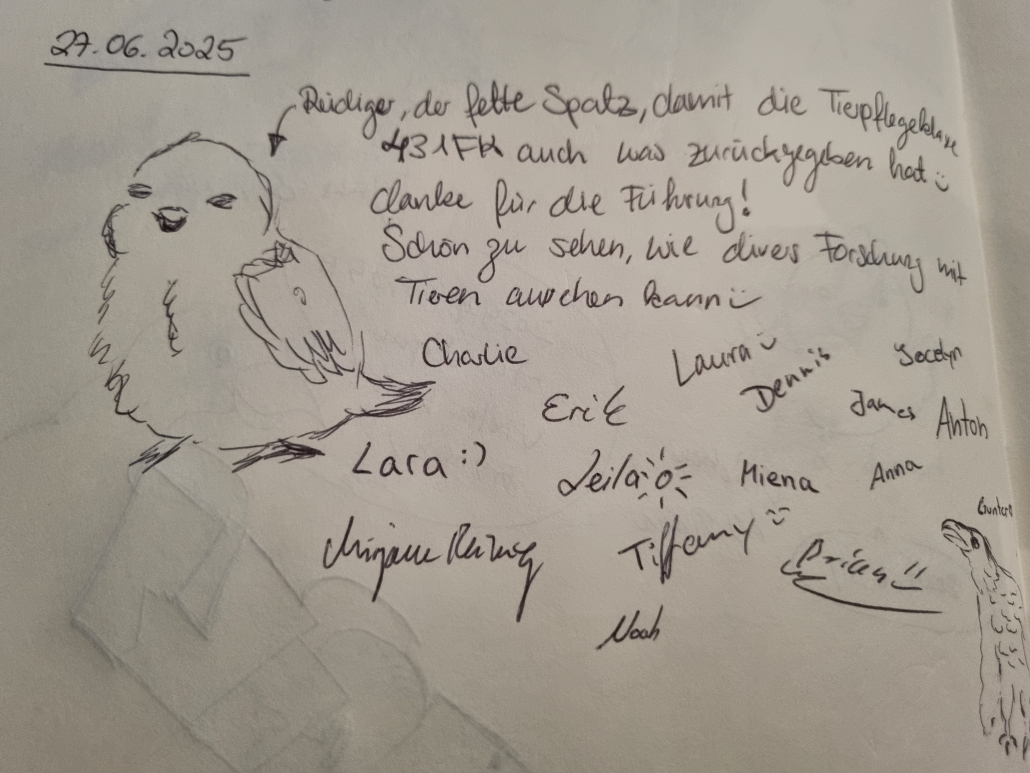 27.06.2025
Rüdiger, der fette Spatz, damit die Tierpflegeklasse
431FK auch was zurückgegeben hat :)
danke für die Führung!
Schön zu sehen, wie divers Forschung mit
Tieren aussehen kann :)
Charlie
Laura :)
Dennis
Jocelyn
Erik
James
Anton
Lara :)
Leila
Miena
Anna
Gunter
Tiffany :)
Brian !!
Noah